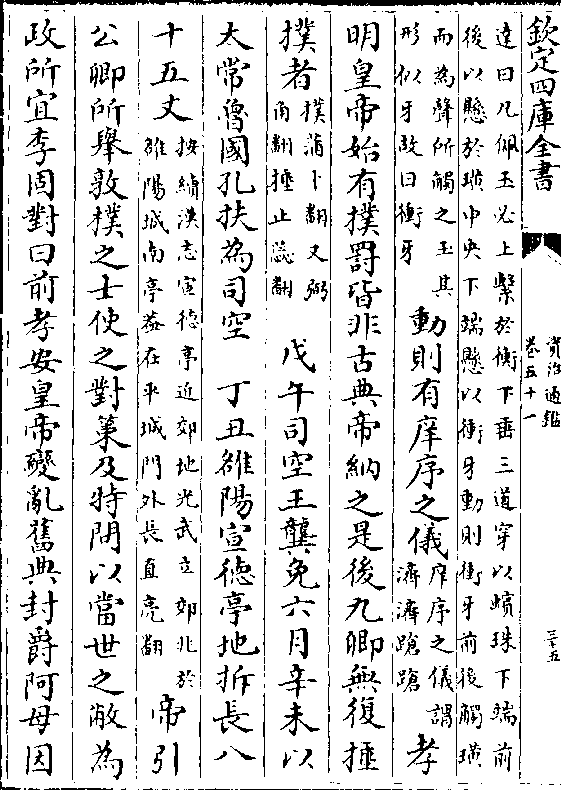 欽定四庫全書
資治通鑑
卷五十一
三十五
達曰凡佩玉必上繫於衡下垂三道穿以蠙珠下端前
後以懸於璜中央下端懸以衝牙動則衝牙前後觸璜
而為聲所觸之玉其
形似牙故曰衝牙
動則有庠序之儀
庠序之儀謂
濟濟蹌蹌
孝
明皇帝始有撲罰皆非古典帝納之是後九卿無復捶
撲者
撲蒲卜翻又弼
角翻捶止蘂翻
戊午司空王龔免六月辛未以
太常魯國孔扶為司空　丁丑雒陽宣徳亭地拆長八
十五丈
按續漢志宣徳亭近郊地光武立郊兆於
雒陽城南亭葢在平城門外長直亮翻
帝引
公卿所舉敦樸之士使之對策及特問以當世之敝為
政所宜李固對曰前孝安皇帝變亂舊典封爵阿母因